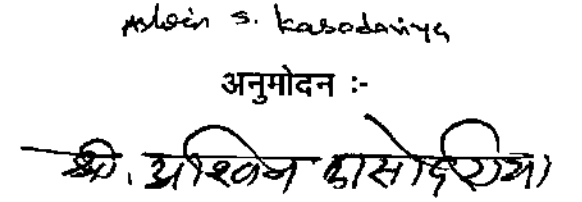 Ashvin S. Kasodariya
अनुमोदन :-
श्री. अश्विन कासोदरीया